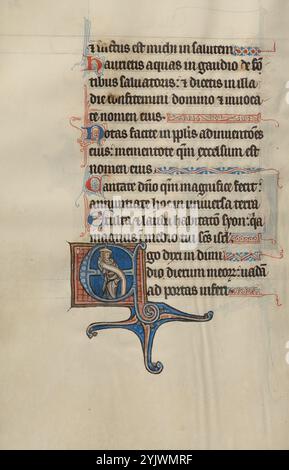 & factus est michi in salutem
haurietis aquas in gaudio de fon
tibus saluatoris: & dicetis in illa
die confitemini domino & inuoca
te nomen eius.
Notas facite in pplis adinuentões
eius: mementote qm̄ excelsum est
nomen eius
Cantate dño qm̄ magnifice fecit:
annuntiate hoc in uniuersa terra
Exulta & lauda habitatio syon: qa
magnus in medio tui scs isrl
Ego dixi in dimi
dio dierum meoꝝ: uadā
ad portas inferi
alamy - 2YJWMRF